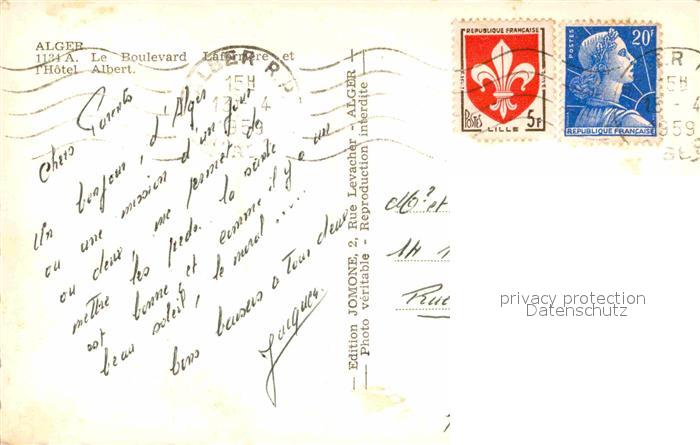 ALGER
1134 A. Le Boulevard Laferrière et
l'Hôtel Albert.
Chers Parents
Un bonjour d'Alger
ou une mission d'un jour
ou deux, me permet de
mettre les pieds. La santé
est bonne et comme il y a un
beau soleil, le moral.....
bons baisers à tous deux
Jacques
— Edition JOMONE, 2, Rue Levacher - ALGER +
— Photo véritable - Reproduction interdite
ALGER R.P
15H
1959
REPUBLIQUE FRANÇAISE
POSTES
LILLE
5F
POSTES
20F
REPUBLIQUE FRANÇAISE
ER R
5H
-4
959
et
14
Rue
privacy protection
Datenschutz